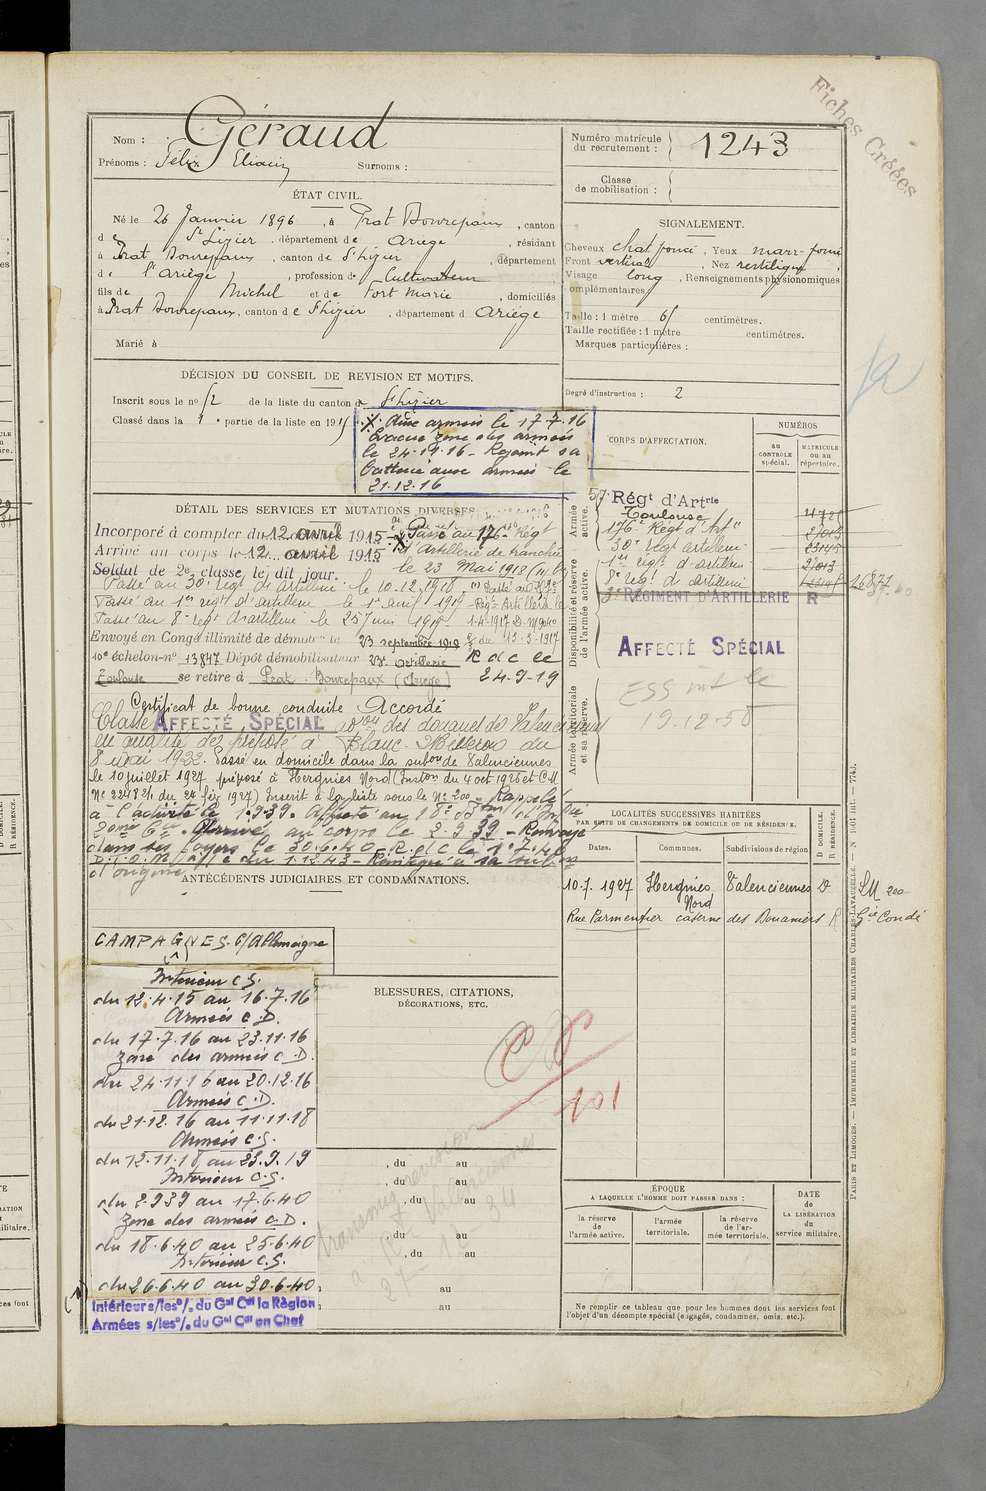 Fiches Créées
Nom : Géraud
Prénoms : Félix Eliacin Surnoms :
Numéro matricule du recrutement : 1243
Classe de mobilisation :
ÉTAT CIVIL.
Né le 26 Janvier 1896, à Prat Bonrepaux, canton
de St Lizier, département de Ariège, résidant
à Prat Bonrepaux, canton de St Lizier, département
de l'Ariège, profession de Cultivateur
fils de Michel et de Fort Marie, domiciliés
à Prat Bonrepaux, canton de St Lizier, département d Ariège
Marié à
SIGNALEMENT.
Cheveux chat foncé, Yeux marr-foncé
Front vertical, Nez rectiligne
Visage long, Renseignements physionomiques
complémentaires
Taille : 1 mètre 61 centimètres.
Taille rectifiée : 1 mètre centimètres.
Marques particulières :
Degré d'instruction : 2
DÉCISION DU CONSEIL DE REVISION ET MOTIFS.
Inscrit sous le no 52 de la liste du canton de St Lizier
Classé dans la 1 partie de la liste en 1915
Aux armées le 17-7-16
Evacué zone des armées
le 24-11-16 - Rejoint sa
batterie aux armées le
21.12.16
DÉTAIL DES SERVICES ET MUTATIONS DIVERSES
Incorporé à compter du 12 avril 1915
Arrivé au corps le 12 avril 1915
Soldat de 2e classe le dit jour.
Passé au 176e Régt
d'artillerie de tranchée
le 23 Mai 1918
Passé au 30e régt d'artillerie le 10.12.1918
Passé au 1er régt d'artillerie le 1er avril 1919
Passé au 8e régt d'artillerie le 25 juin 1919
1-4-1917 D.M 940
du 13-3-1917
Envoyé en Congé illimité de démob le 23 septembre 1919
10e échelon-no 13847 Dépôt démobilisateur 23e artillerie
R d c le
24-9-19
Toulouse se retire à Prat Bonrepaux (Ariège)
Certificat de bonne conduite Accordé
Classé AFFECTÉ SPÉCIAL des douanes de Valenciennes
en qualité de préposé à Blanc-Misseron du
8 mai 1922. Passé en domicile dans la subon de Valenciennes
le 10 juillet 1927 préposé à Hergnies Nord (Inston du 4 oct 1925 et C.M
No 2248 2/1 du 24 fév 1927) Inscrit à la liste sous le No 200 - Rappelé
à l'activité le 1.9.39. Affecté au
Arrivé au corps le 2.9.39 - Renvoyé
dans ses foyers le 30.6.40. R.d.c le 1.7.40
du 1.12.43 - Réintégré à sa subon
d'origine
CORPS D'AFFECTATION.
NUMÉROS
au CONTRÔLE spécial.
MATRICULE ou au répertoire.
Armée active.
Disponibilité et réserve de l'armée active.
Armée territoriale et sa réserve.
57e Régt d'Artrie
Toulouse
176e Régt d'Arte
30e régt artillerie
1er régt d'artillerie
8e régt d'artillerie
3e RÉGIMENT D'ARTILLERIE R
AFFECTÉ SPÉCIAL
19.12-50
ANTÉCÉDENTS JUDICIAIRES ET CONDAMNATIONS.
LOCALITÉS SUCCESSIVES HABITÉES
PAR SUITE DE CHANGEMENTS DE DOMICILE OU DE RÉSIDENCE.
Dates. Communes. Subdivisions de région D DOMICILE. R RÉSIDENCE.
10.7.1927 Hergnies Nord Valenciennes D
Rue Parmentier caserne des Douaniers R
CAMPAGNES. c/Allemagne
Intérieur C.S.
du 12.4.15 au 16.7.16
Armées C.D.
du 17.7.16 au 23.11.16
zone des armées C.D.
du 24.11.16 au 20.12.16
Armées C.D.
du 21.12.16 au 11.11.18
Armées C.S.
du 12.11.18 au 23.9.19
Intérieur C.S.
du 2.9.39 au 17.6.40
Zone des armées C.D.
du 18.6.40 au 25.6.40
Intérieur C.S.
du 26.6.40 au 30.6.40
Intérieur s/les o/. du Gal Ct la Région
Armées s/les o/. du Gal Ct en Chef
BLESSURES, CITATIONS,
DÉCORATIONS, ETC.
101
, du au
, du au
, du au
, du au
, du au
au
au
ÉPOQUE
A LAQUELLE L'HOMME DOIT PASSER DANS :
la réserve de l'armée active.
l'armée territoriale.
la réserve de l'armée territoriale.
DATE DE LA LIBÉRATION du service militaire.
Ne remplir ce tableau que pour les hommes dont les services font
l'objet d'un décompte spécial (engagés, condamnés, omis, etc.).
PARIS ET LIMOGES. — IMPRIMERIE ET LIBRAIRIE MILITAIRES CHARLES-LAVAUZELLE.